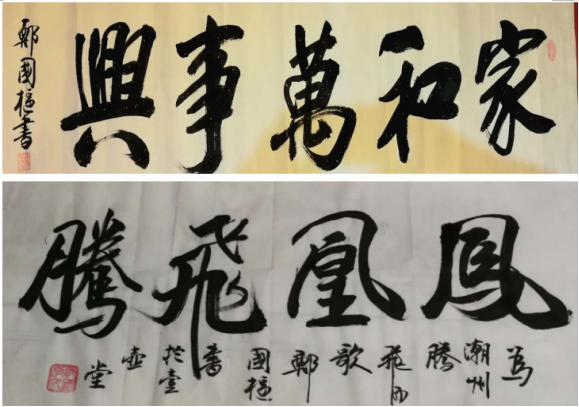 家和萬事興
鄭國樞書
鳳凰飛騰
為潮州騰飛而歌鄭國樞書於壹壺堂